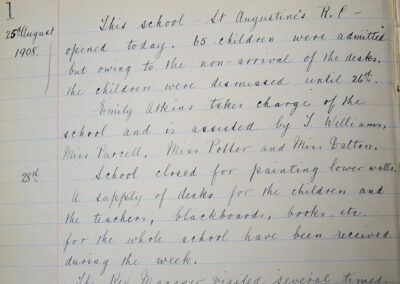 1
25th August
1908.
This school - St Augustine's R.C -
opened today. 65 children were admitted
but owing to the non-arrival of the desks,
the children were dismissed until 26th.
Emily Atkins takes charge of the
school and is assisted by T Williams,
Miss Purcell, Miss Potter and Miss Dalton.
28th
School closed for painting lower walls.
A supply of desks for the children and
the teachers, blackboards, books etc.
for the whole school have been received
during the week.
The Rev Manager visited several times.